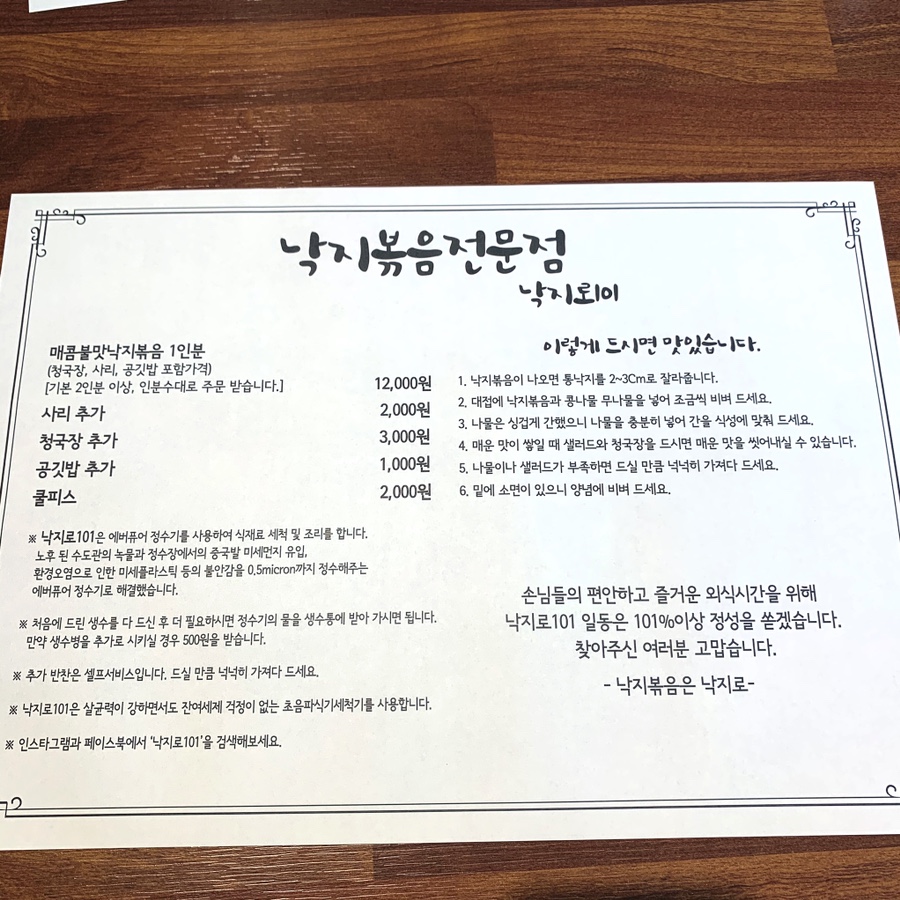 낙지볶음전문점
낙지로101
매콤불맛낙지볶음 1인분
(청국장, 사리, 공깃밥 포함가격)
[기본 2인분 이상, 인분수대로 주문 받습니다.] 12,000원
사리 추가 2,000원
청국장 추가 3,000원
공깃밥 추가 1,000원
쿨피스 2,000원
※ 낙지로101은 에버퓨어 정수기를 사용하여 식재료 세척 및 조리를 합니다.
노후 된 수도관의 녹물과 정수장에서의 중국발 미세먼지 유입,
환경오염으로 인한 미세플라스틱 등의 불안감을 0.5micron까지 정수해주는
에버퓨어 정수기로 해결했습니다.
※ 처음에 드린 생수를 다 드신 후 더 필요하시면 정수기의 물을 생수통에 받아 가시면 됩니다.
만약 생수병을 추가로 시키실 경우 500원을 받습니다.
※ 추가 반찬은 셀프서비스입니다. 드실 만큼 넉넉히 가져다 드세요.
※ 낙지로101은 살균력이 강하면서도 잔여세제 걱정이 없는 초음파식기세척기를 사용합니다.
※ 인스타그램과 페이스북에서 '낙지로101'을 검색해보세요.
이렇게 드시면 맛있습니다.
1. 낙지볶음이 나오면 통낙지를 2~3Cm로 잘라줍니다.
2. 대접에 낙지볶음과 콩나물 무나물을 넣어 조금씩 비벼 드세요.
3. 나물은 싱겁게 간했으니 나물을 충분히 넣어 간을 식성에 맞춰 드세요.
4. 매운 맛이 쌓일 때 샐러드와 청국장을 드시면 매운 맛을 씻어내실 수 있습니다.
5. 나물이나 샐러드가 부족하면 드실 만큼 넉넉히 가져다 드세요.
6. 밑에 소면이 있으니 양념에 비벼 드세요.
손님들의 편안하고 즐거운 외식시간을 위해
낙지로101 일동은 101%이상 정성을 쏟겠습니다.
찾아주신 여러분 고맙습니다.
- 낙지볶음은 낙지로-